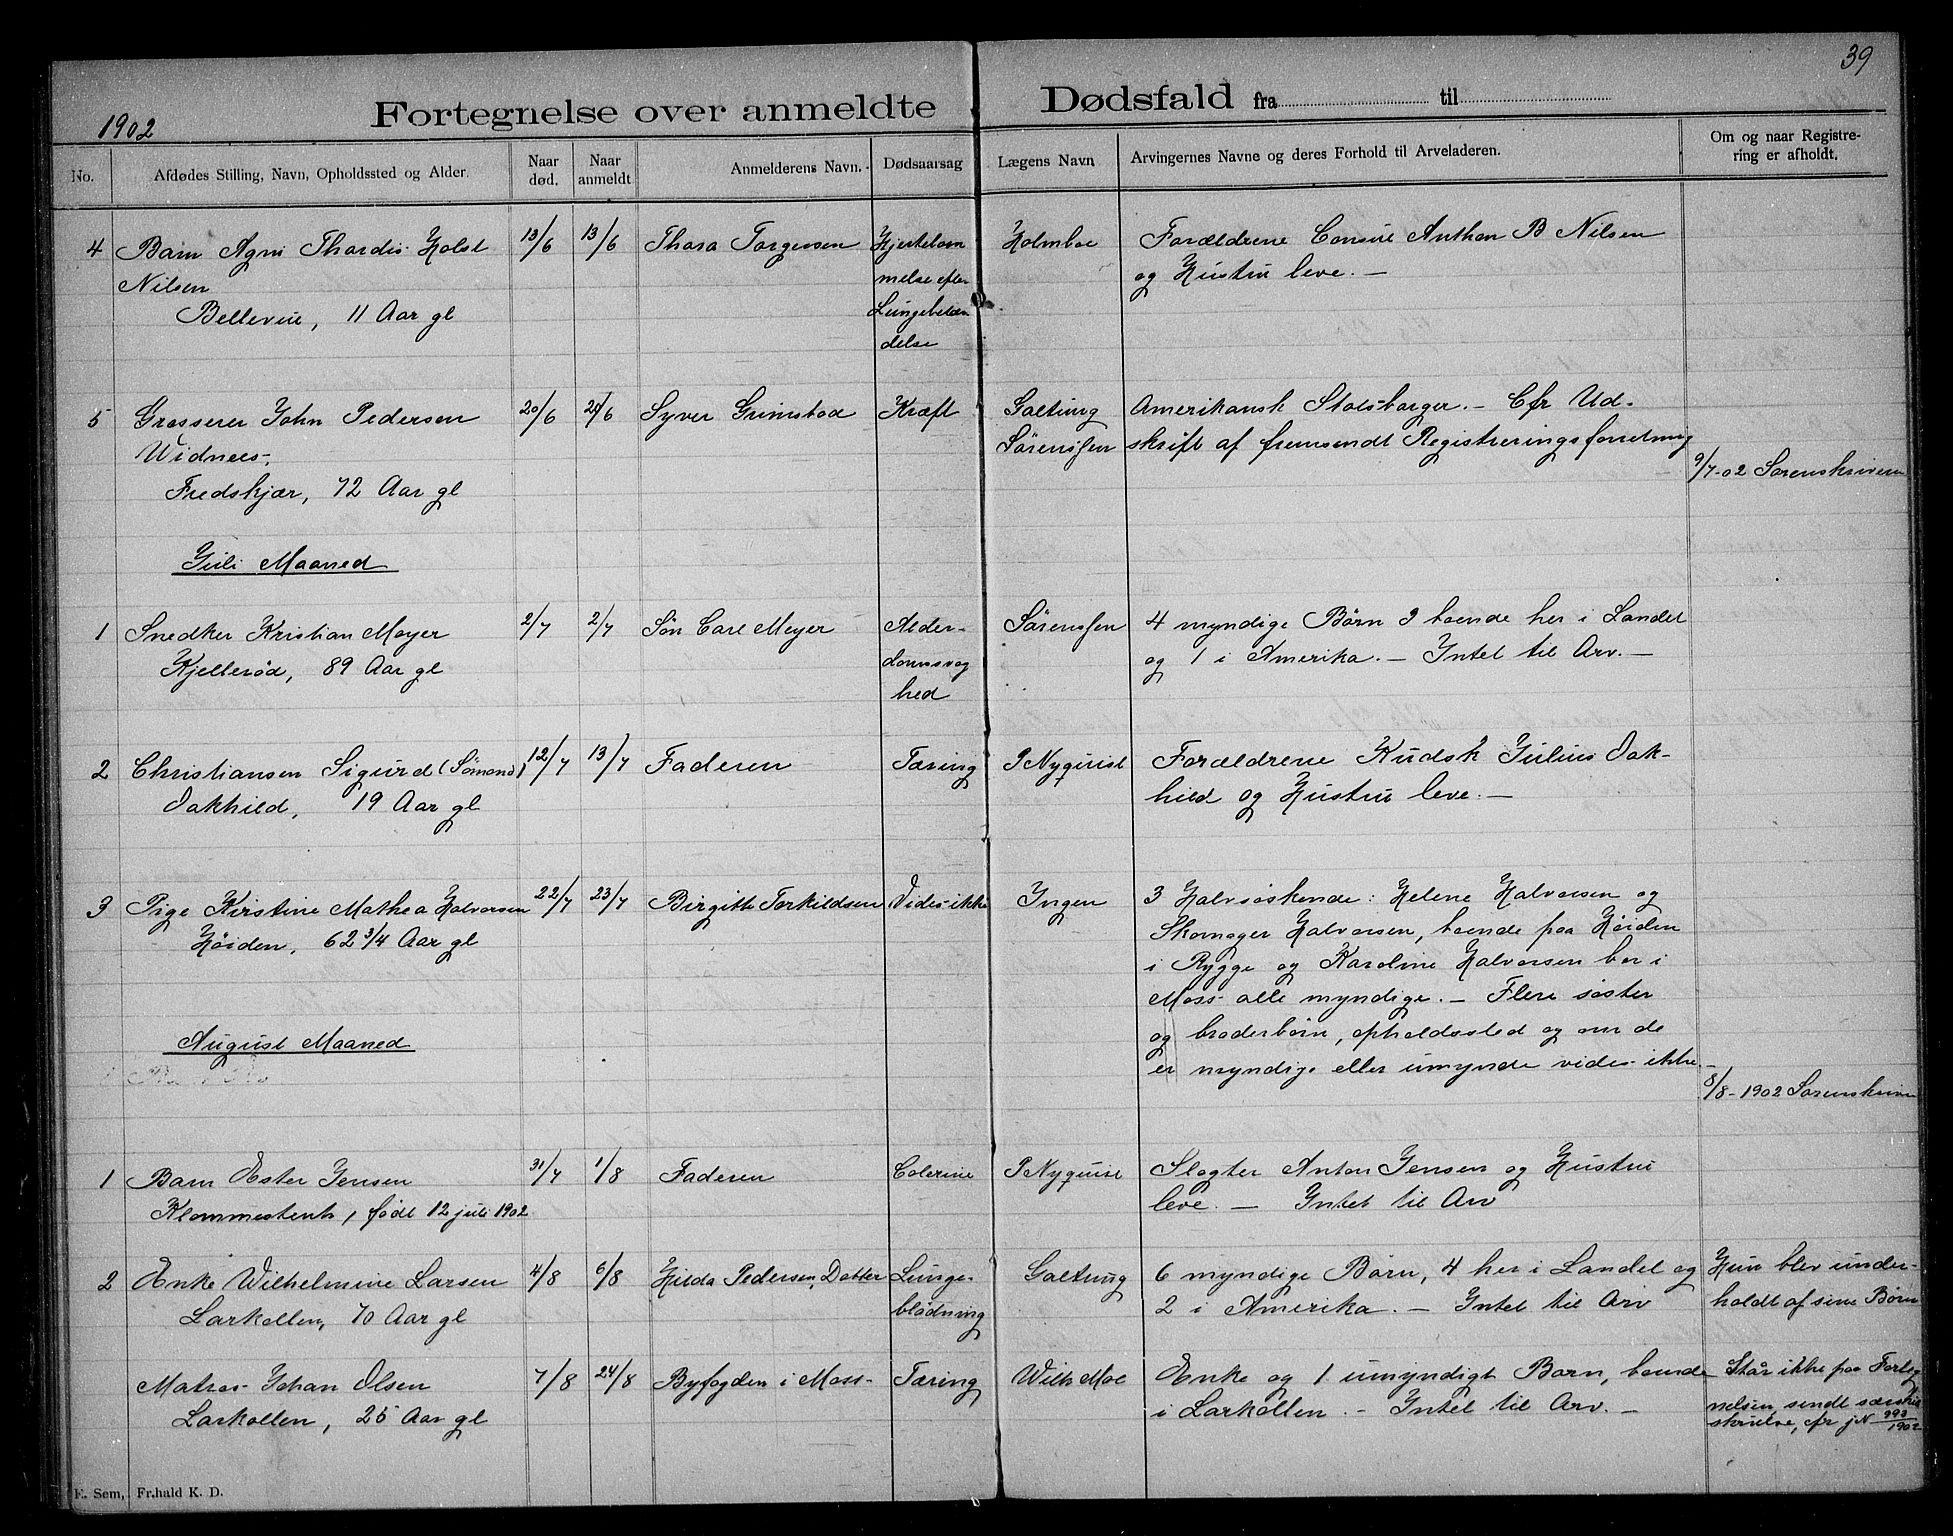 39
1902
Fortegnelse over anmeldte Dødsfald fra til
No.
Afdødes Stilling, Navn, Opholdssted og Alder.
Naar død.
Naar anmeldt
Anmelderens Navn.
Dødsaarsag
Lægens Navn
Arvingernes Navne og deres Forhold til Arveladeren.
Om og naar Registre-
ring er afholdt.
4 Barn Agni Thordis Holst 13/6 13/6 Thora Torgersen Hjertelam Holmboe Forældrene Consul Anthon B Nilsen
Nilsen melse efter og Hustru leve. —
Bellevue, 11 Aar gl Lungebetæn
delse
5 Grosserer John Pedersen 20/6 21/6 Syver Grimstad Kræft Galtung Amerikansk Statsborger. — Cfr Ud-
Widnees, Sörenssen skrift af fremsendt Registreringsforretning
Fredskjær, 72 Aar gl 9/7-02 Sorenskriveren
Juli Maaned
1 Snedker Kristian Meyer 2/7 2/7 Sön Carl Meyer Alder- Sörenssen 4 myndige Børn 3 boende her i Landet
Kjellerød, 89 Aar gl domsvag og 1 i Amerika. — Intet til Arv. —
hed
2 Christiansen Sigurd (Sömand) 12/7 13/7 Faderen Tæring P Nyquist Forældrene Kudsk Julius Oak-
Oakhild, 19 Aar gl hild og Hustru leve. —
3 Pige Kirstine Mathea Halvorsen 22/7 23/7 Birgitte Torkildsen Vides ikke Ingen 3 Halvsøskende: Helene Halvorsen og
Höiden, 62 3/4 Aar gl Skomager Halvorsen, boende paa Höiden
i Rygge og Karoline Halvorsen bor i
Moss alle myndige. — Flere søster
August Maaned og broderbörn, opholdssted og om de
er myndige eller umynde vides ikke. —
8/8-1902 Sorenskriver
1 Barn Ester Jensen 31/7 1/8 Faderen Colerine P Nyquist Slagter Anton Jensen og Hustru
Klommesten, født 12 juli 1902 leve. — Intet til Arv
2 Enke Wilhelmine Larsen 4/8 6/8 Hilda Pedersen, Datter Lunge- Galtung 6 myndige Børn, 4 her i Landet og Hun blev under-
Larkollen, 70 Aar gl blödning 2 i Amerika. — Intet til Arv holdt af sine Børn
Matros Johan Olsen 7/8 24/8 Byfogden i Moss Tæring Wilh Moe Enke og 1 umyndigt Barn, boende Står ikke paa Forteg
Larkollen, 25 Aar gl i Larkollen. — Intet til Arv. — nelsen, sendt særski
skrivelse, cfr jN 1902
E. Sem, Fr.hald K. D.